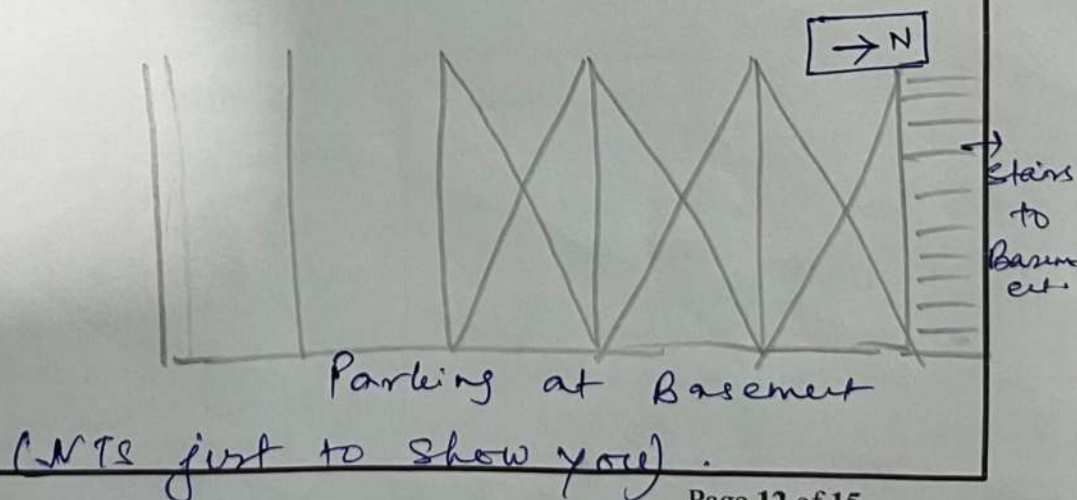 → N
→
Stairs
to
Basem
ent
Parking at Basement
(NTS just to show you).
Page 12 of 15